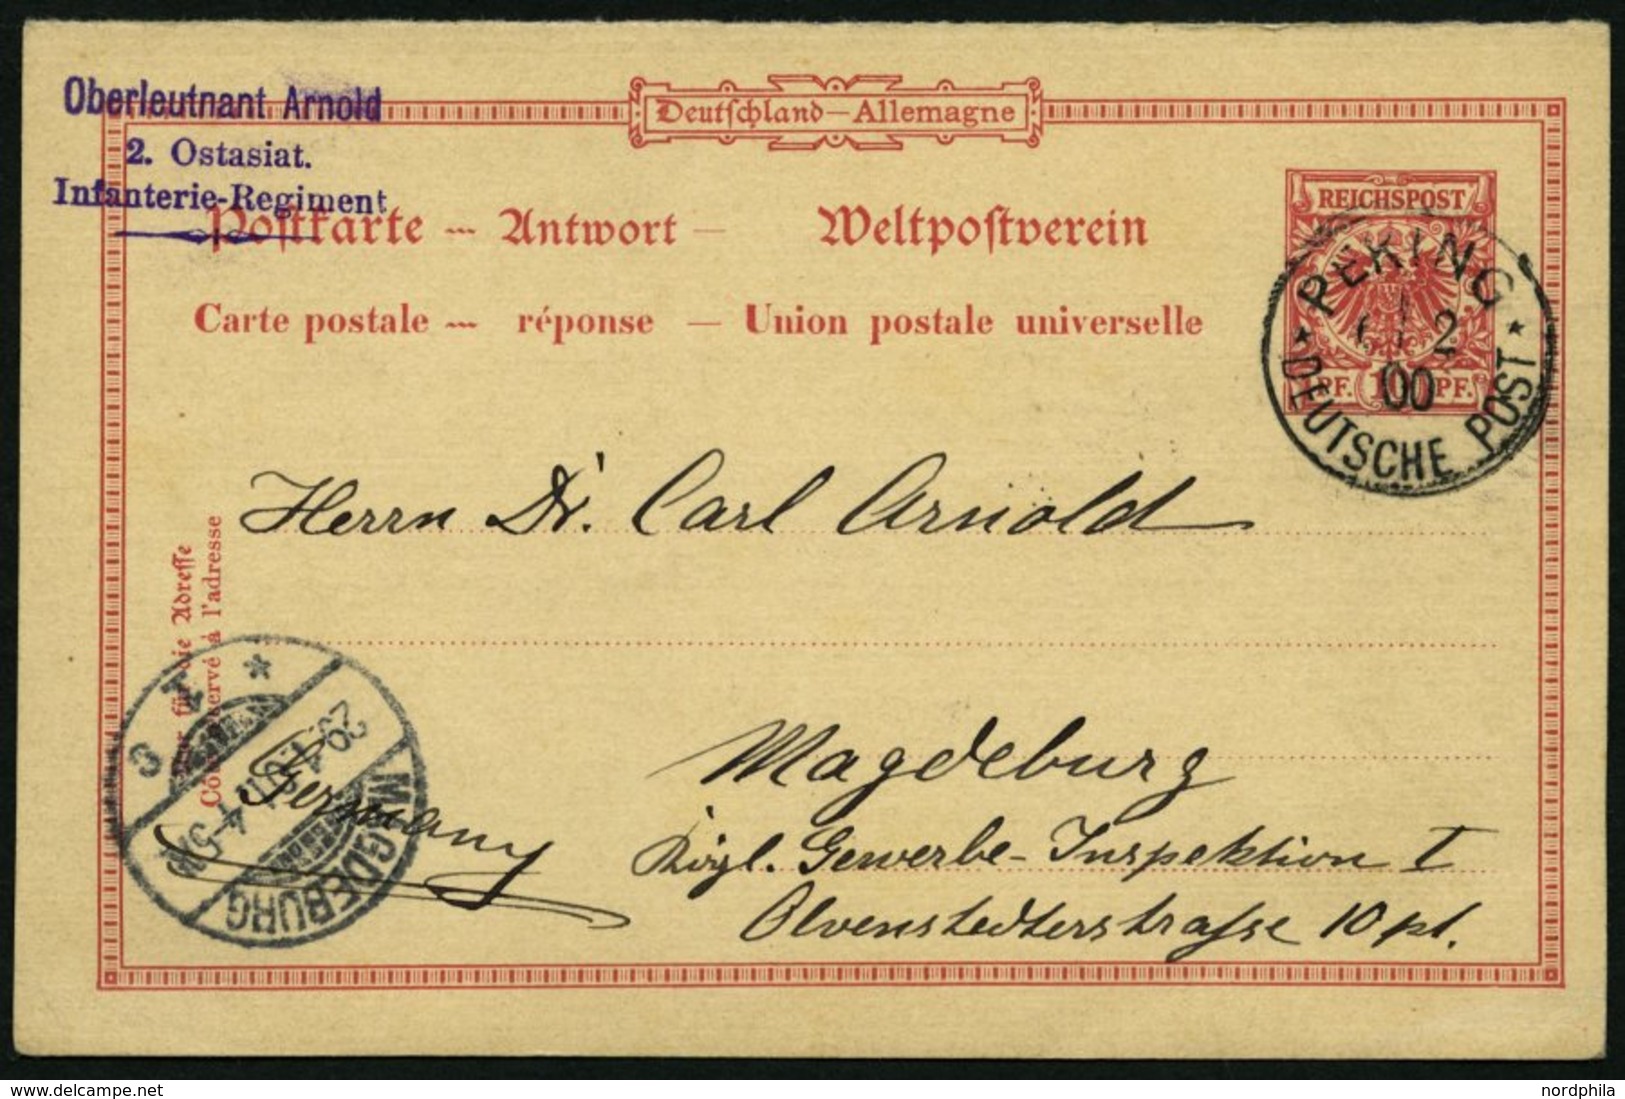 Oberleutnant Arnold
2. Ostasiat.
Infanterie-Regiment
Deutschland — Allemagne
Postkarte — Antwort — Weltpostverein
Carte postale — réponse — Union postale universelle
REICHSPOST
PF. 10 PF.
PEKING
2
00
DEUTSCHE POST
Herrn Dr. Carl Arnold
Nur für die Adresse
Côté réservé à l'adresse
Magdeburg
Germany
Kögl. Gewerbe-Inspektion I
Olvenstedterstrasse 10 pt.
MAGDEBURG
4-5N
nordphila